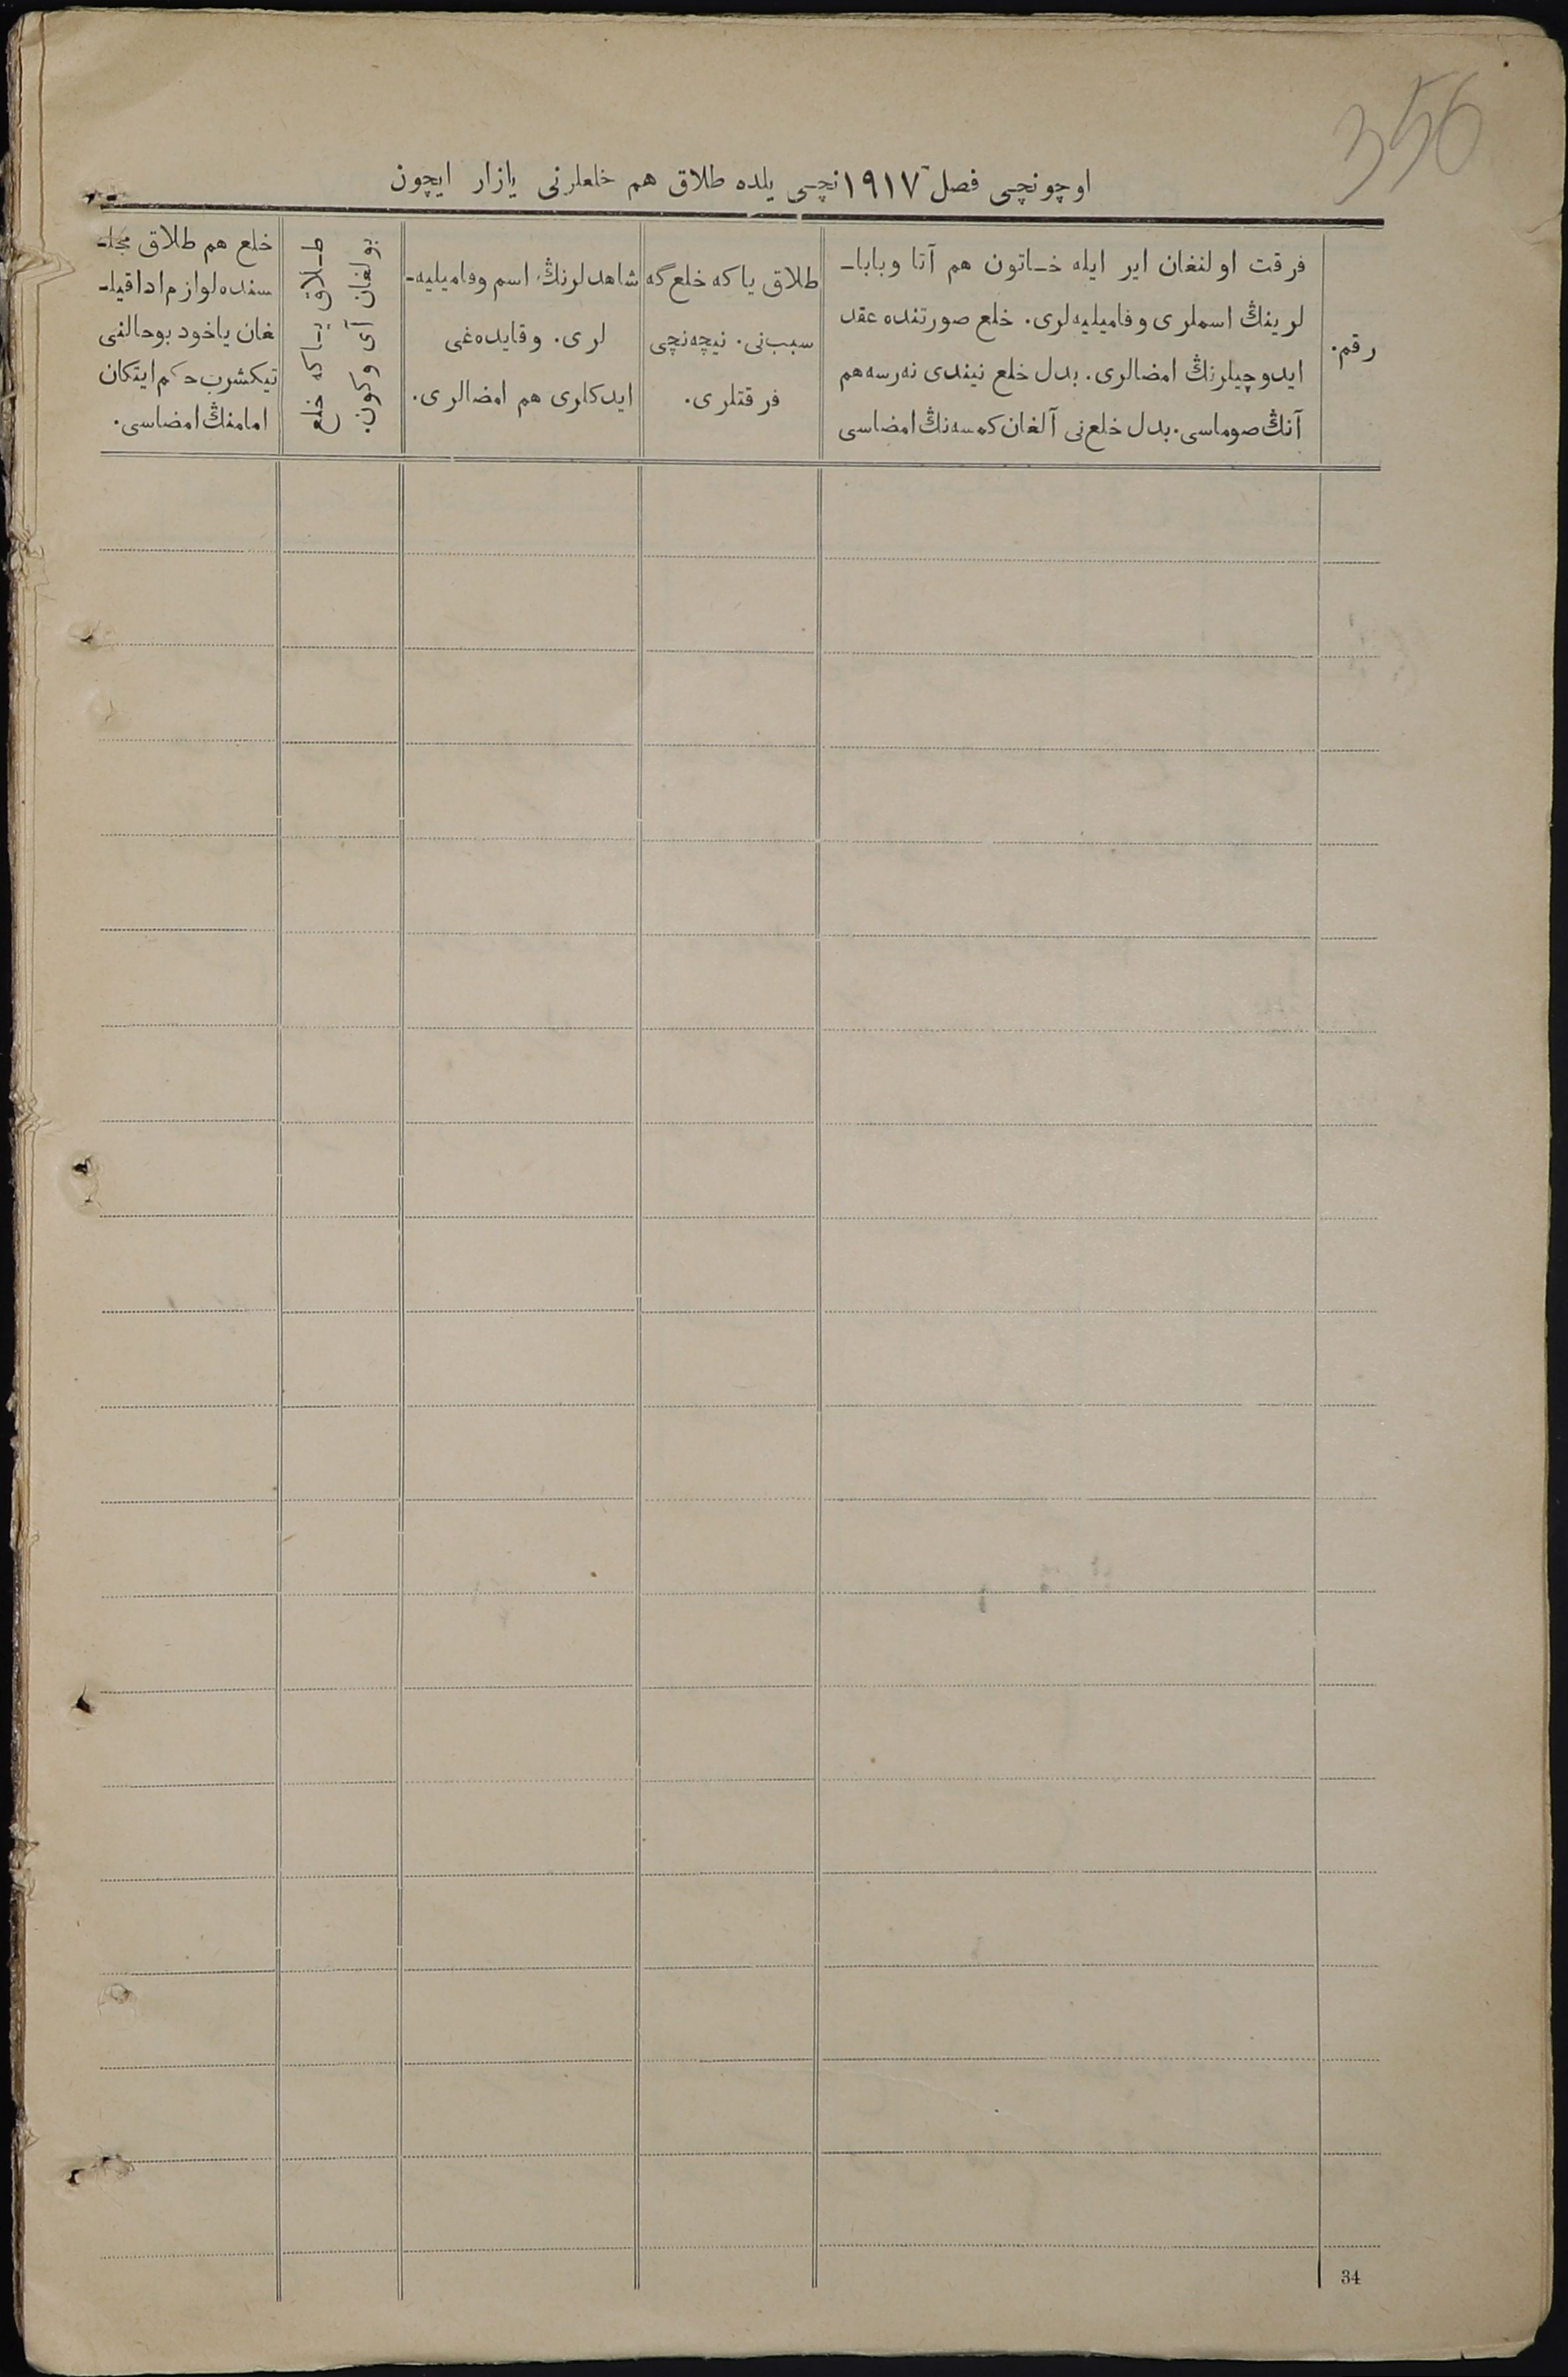 356
اوچونچی فصل ١٩١٧نچی یلده طلاق هم خلعلرنی یازار ایچون
رقم.
فرقت اولنغان ایر ایله خاتون هم آتا وبابا-
لرینڭ اسملری وفامیلیه‌لری. خلع صورتنده عقد
ایدوچیلرنڭ امضالری. بدل خلع نیندی نه‌رسه هم
آنڭ صوماسی. بدل خلع‌نی آلغان کمسه‌نڭ امضاسی
طلاق یا که خلع‌گه
سبب‌نی. نیچه‌نچی
فرقتلری.
شاهدلرنڭ اسم وفامیلیه-
لری. وقایده‌غی
ایدکلری هم امضالری.
طلاق یاکه خلع
بولغان آی وکون.
خلع هم طلاق مجلـ
سنده لوازم ادا قیلـ
غان یاخود بوحالنی
تیکشرب حکم ایتکان
امامنڭ امضاسی.
34